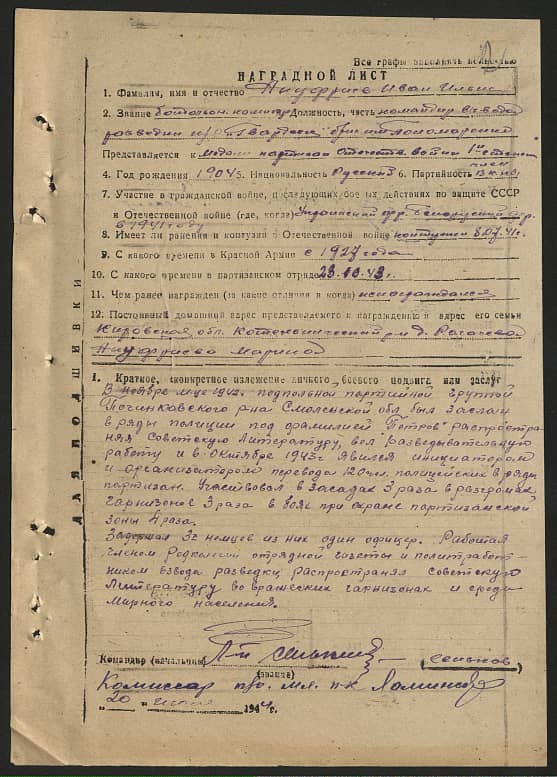 Все графы заполнять полностью
НАГРАДНОЙ ЛИСТ
1. Фамилия, имя и отчество Ануфриев Иван Ильич
2. Звание батальон. комиссар Должность, часть командир взвода
разведки
Представляется к медали партизан Отечеств. войны 1й степени
4. Год рождения 1904 5. Национальность Русский 6. Партийность член ВКП(б)
7. Участие в гражданской войне, последующих боевых действиях по защите СССР
и Отечественной войне (где, когда)
в 1941 году
8. Имеет ли ранения и контузии в Отечественной войне контужен 8.07.41г.
9. С какого времени в Красной Армии с 1927 года
10. С какого времени в партизанском отряде 23.10.43г.
11. Чем ранее награжден (за какие отличия и когда) не награждался
12. Постоянный домашний адрес представляемого к награждению и адрес его семьи
Кировская обл. Котельнический р-н д.
Ануфриева Марина
1. Краткое, конкретное изложение личного боевого подвига или заслуг
В ноябре м-це 1942г. подпольной партийной группой
Починковского р-на Смоленской обл. был заслан
в ряды полиции под фамилией "Петров" распростра-
няя Советскую Литературу, вел разведывательную
работу и в Октябре 1943г. явился инициатором
и организатором перевода 120 чел. полицейских в ряды
партизан. Участвовал в засадах 3 раза в разгромах
гарнизонов 3 раза в боях при охране партизанской
зоны 4 раза.
Задержал 3х немцев из них один офицер. Работая
членом Редколегии отрядной газеты и политработ-
ником взвода разведки, распространял советскую
Литературу во вражеских гарнизонах и среди
мирного населения.
Командир (начальник)
(звание)
Комиссар
20 июля 1944г.
ДЛЯ ПОДШИВКИ